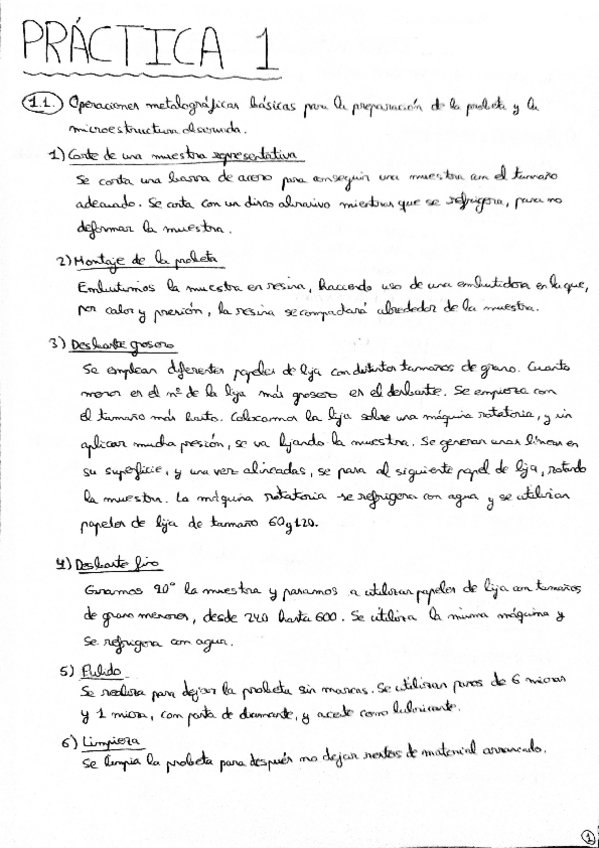 PRÁCTICA 1
1.1. Operaciones metalográficas básicas para la preparación de la probeta y la
microestructura observada.
1) Corte de una muestra representativa
Se corta una barra de acero para conseguir una muestra con el tamaño
adecuado. Se corta con un disco abrasivo mientras que se refrigera, para no
deformar la muestra.
2) Montaje de la probeta
Embutimos la muestra en resina, haciendo uso de una embutidora en la que,
por calor y presión, la resina se compactará alrededor de la muestra.
3) Desbaste grosero
Se emplean diferentes papeles de lija con distintos tamaños de grano. Cuanto
menor es el nº de la lija más grosero es el desbaste. Se empieza con
el tamaño más basto. Colocamos la lija sobre una máquina rotatoria, y sin
aplicar mucha presión, se va lijando la muestra. Se generan unas líneas en
su superficie, y una vez alineadas, se pasa al siguiente papel de lija, rotando
la muestra. La máquina rotatoria se refrigera con agua y se utilizan
papeles de lija de tamaño 60 y 120.
4) Desbaste fino
Giramos 90° la muestra y pasamos a utilizar papeles de lija con tamaños
de grano menores, desde 240 hasta 600. Se utiliza la misma máquina y
se refrigera con agua.
5) Pulido
Se realiza para dejar la probeta sin marcas. Se utilizan paños de 6 micras
y 1 micra, con pasta de diamante, y aceite como lubricante.
6) Limpieza
Se limpia la probeta para después no dejar restos de material arrancado.
1